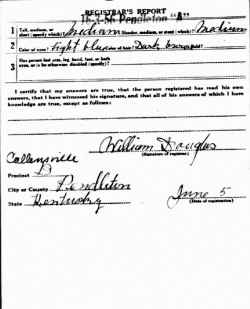 REGISTRAR'S REPORT
16-4-56 Pendleton "A"
1 Tall, medium, or short (specify which)? Medium Slender, medium, or stout (which)? Medium
2 Color of eyes? Light blue Color of hair? Dark brown
3 Has person lost arm, leg, hand, foot, or both eyes, or is he otherwise disabled (specify)?
I certify that my answers are true, that the person registered has read his own answers, that I have witnessed his signature, and that all of his answers of which I have knowledge are true, except as follows:
William Douglas
(Signature of registrar)
Callensville
Precinct D
City or County Pendleton
State Kentucky
June 5
(Date of registration)